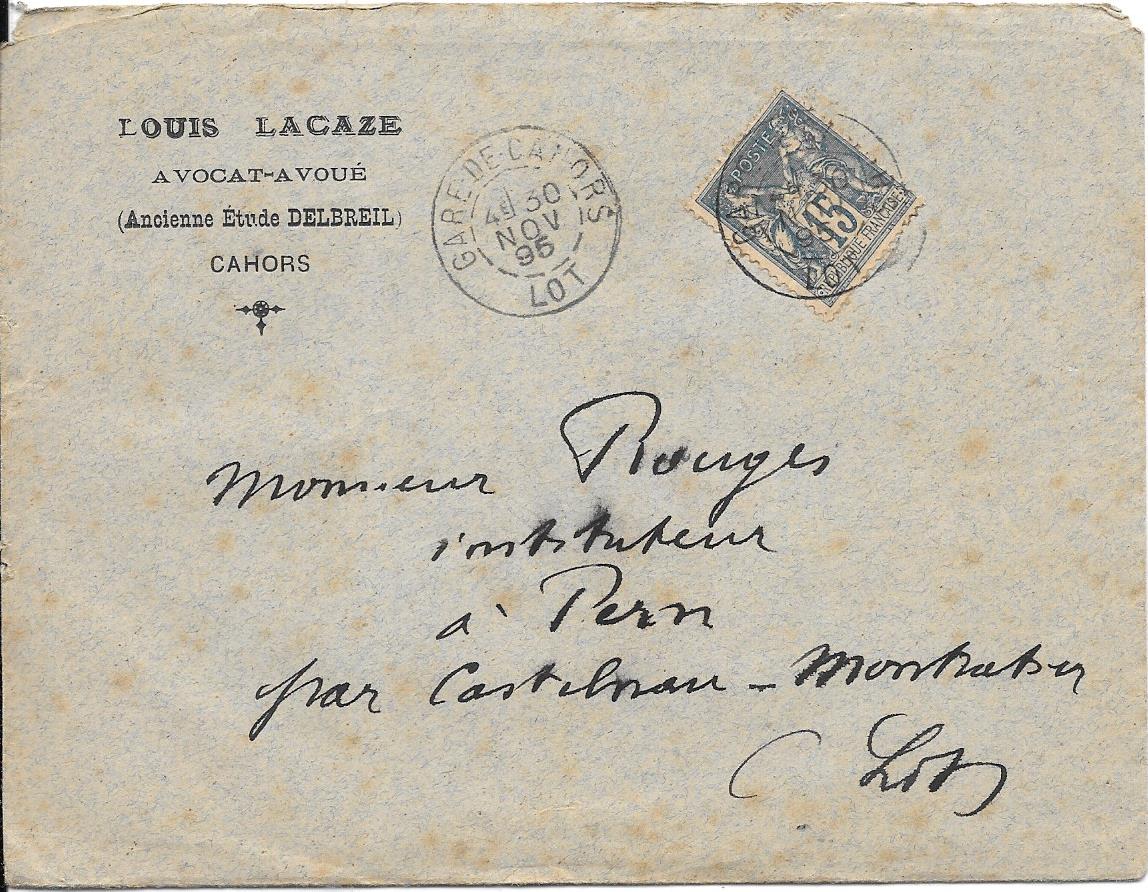 LOUIS LACAZE
AVOCAT-AVOUÉ
(Ancienne Étude DELBREIL)
CAHORS
GARE-DE-CAHORS
4E 30
NOV
95
LOT
POSTES
15
REPUBLIQUE FRANCAISE
Monsieur Rouges
instituteur
à Pern
par Castelnau - Montratier
(Lot)